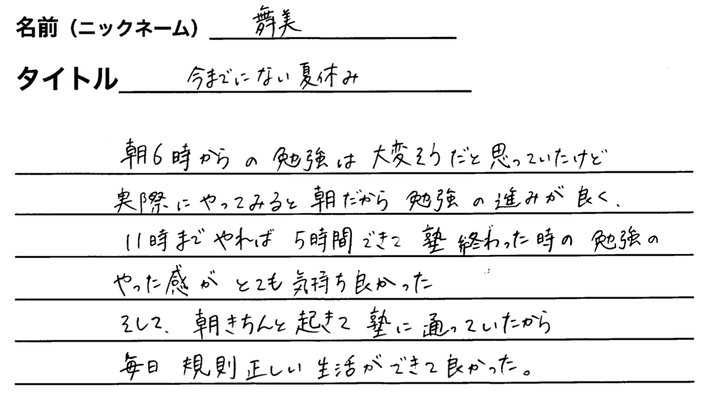 名前（ニックネーム） 舞美
タイトル 今までにない夏休み
朝6時からの勉強は大変そうだと思っていたけど
実際にやってみると朝だから勉強の進みが良く、
11時までやれば5時間できて塾終わった時の勉強の
やった感がとても気持ち良かった
そして、朝きちんと起きて塾に通っていたから
毎日規則正しい生活ができて良かった。